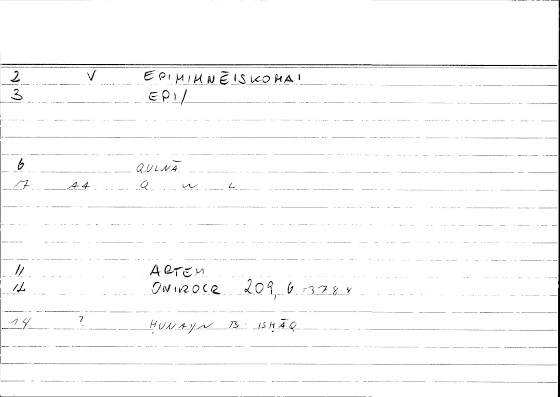 2 V EPIMIMNĒISKOMAI
3 EPI/
6 QULNĀ
7 AA Q W L
11 ARTEM
12 ONIROCR 209,6 = 378.4
14 ? ḤUNAYN B ISḤĀQ